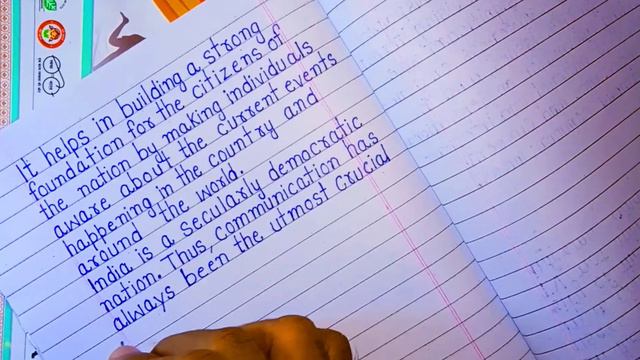 It helps in building a strong
foundation for the citizens of
the nation by making individuals
aware about the current events
happening in the country and
around the world.
India is a secularly democratic
nation. Thus, communication has
always been the utmost crucial